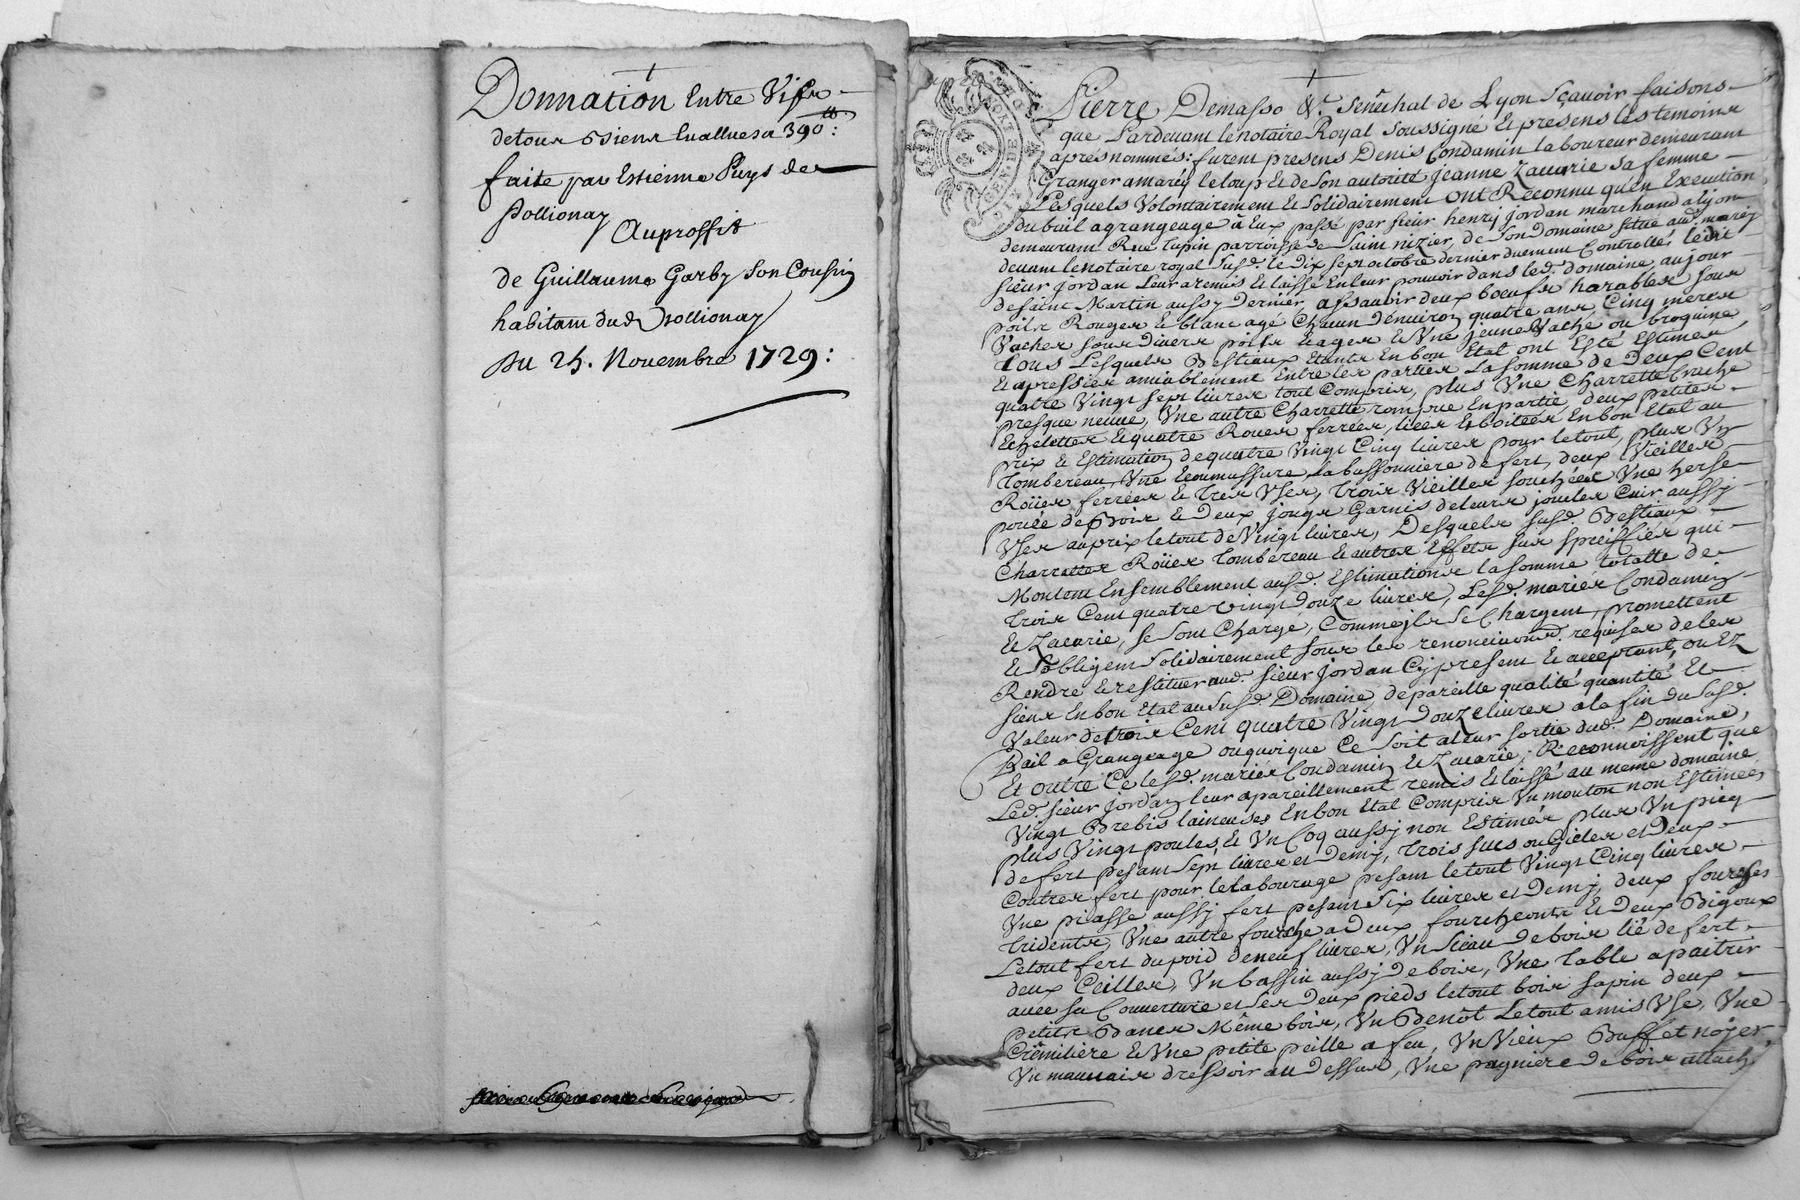 Donnation Entre Vifs
detous Ssiens Evallues a 390ᵗᵗ:
faite par Estienne Puys de
Pollionay
Auproffit
de Guillaume Garby son Cousin
habitant dud Pollionay
Du 25. Novembre 1729:
Pierre Demasso &ª. Senêchal de Lyon Sçavoir faisons
que Pardevant le notaire Royal soussigné Et presens Les temoins
aprés nommés: furent presens Denis Condamin laboureur demeurant
Granger a marcy le loup Et de Son autorité Jeanne Zacarie sa femme
Lesquels Volontairement Et Solidairement ont Reconnu qu'en Execution
du bail a grangeage à Eux passé par sieur henry Jordan marchand a lyon
demeurant Rue lupin parroisse de Saint nizier, de Son Domaine situé aud. marcy
devant le notaire royal susd. le dix sept octobre dernier duement Controllé, ledit
sieur Jordan Leur a remis Et laissé En leur pouvoir dans led. domaine au jour
de saint Martin aussy dernier, assavoir deux boeufs harables sous
poils Rouges & blanc agé Chacun d'environ quatre ans Cinq meres
Vaches sous divers poils & ages & Vne jeune Vache ou broquine
Tous Lesquels Bestiaux Etants En bon Etat ont Esté Estimes
Et apressies amiablement Entre les parties La somme de Deux Cent
quatre Vingt sept livres tout Compris, plus Vne Charrette Cruche
presque neuve, Vne autre Charrette rompue En partie deux petites
Echelettes & quatre Roues ferrées, liées & boitées En bon Etat au
prix & Estimation de quatre Vingt Cinq livres pour le tout, plus Vn
Tombereau, Vne Ecoumassure la bassonniere de fert, deux Vieilles
Roües ferrées & tres Vses, trois Vieilles souchées Vne herse
de Bois & Deux jougs Garnis de leurs joucles Cuir aussy
Vses au prix le tout de Vingt livres, Desquels susd Bestiaux
Charrettes Roües Tombereau & autres Effets sus speciffiés qui
Montent Ensemblement ausd. Estimations la somme totalle de
trois Cent quatre Vingt Douze livres, Lesd. maries Condamin
& Zacarie, se sont Chargé, Comme jls se Chargent, promettent
& s'obligent solidairement sous les renonciaons. requises de les
Rendre & restituer aud. sieur Jordan Cy present & acceptant, ou Ez
siens En bon Etat au susd. Domaine, de pareille qualité quantité Et
Valeur de trois Cent quatre Vingt Douze livres a la fin du susd.
Bail a Grangeage ou quoique Ce soit a leur sortie dud. Domaine,
Et outre Ce lesd. mariés Condamin & Zacarie, Reconnoissent que
Led. sieur Jordan leur a pareillement remis & laissé au meme domaine
Vingt Brebis laineuses En bon Etat Compris Vn mouton non Estimées
plus Vingt poules, & Vn Coq aussy non Estimés plus Vn picq
de fert pesant sept livres et Demy, trois sucs ou Gicles et Deux
Coutres fert pour le labourage pesant le tout Vingt Cinq livres
Vne piasse aussy fert pesant Six livres et Demy, deux fourches
tridents, Vne autre fourche a Deux fourcheons Et Deux Bigoux
Le tout fert du poid de neuf livres, Vn Sceau de bois lié de fert
deux Ceilles, Vn bassin aussy de bois, Vne Table a paitrir
avec sa Couverture et ses deux pieds le tout bois sapin deux
petits Bancs Même bois, Vn Benôt Le tout a mis Vse, Vne
Crêmiliere & Vne petite peille a feu, Vn Vieux Buffet nöyer
Vn mauvais dressoir au dessus, Vne pagniere de bois attaché